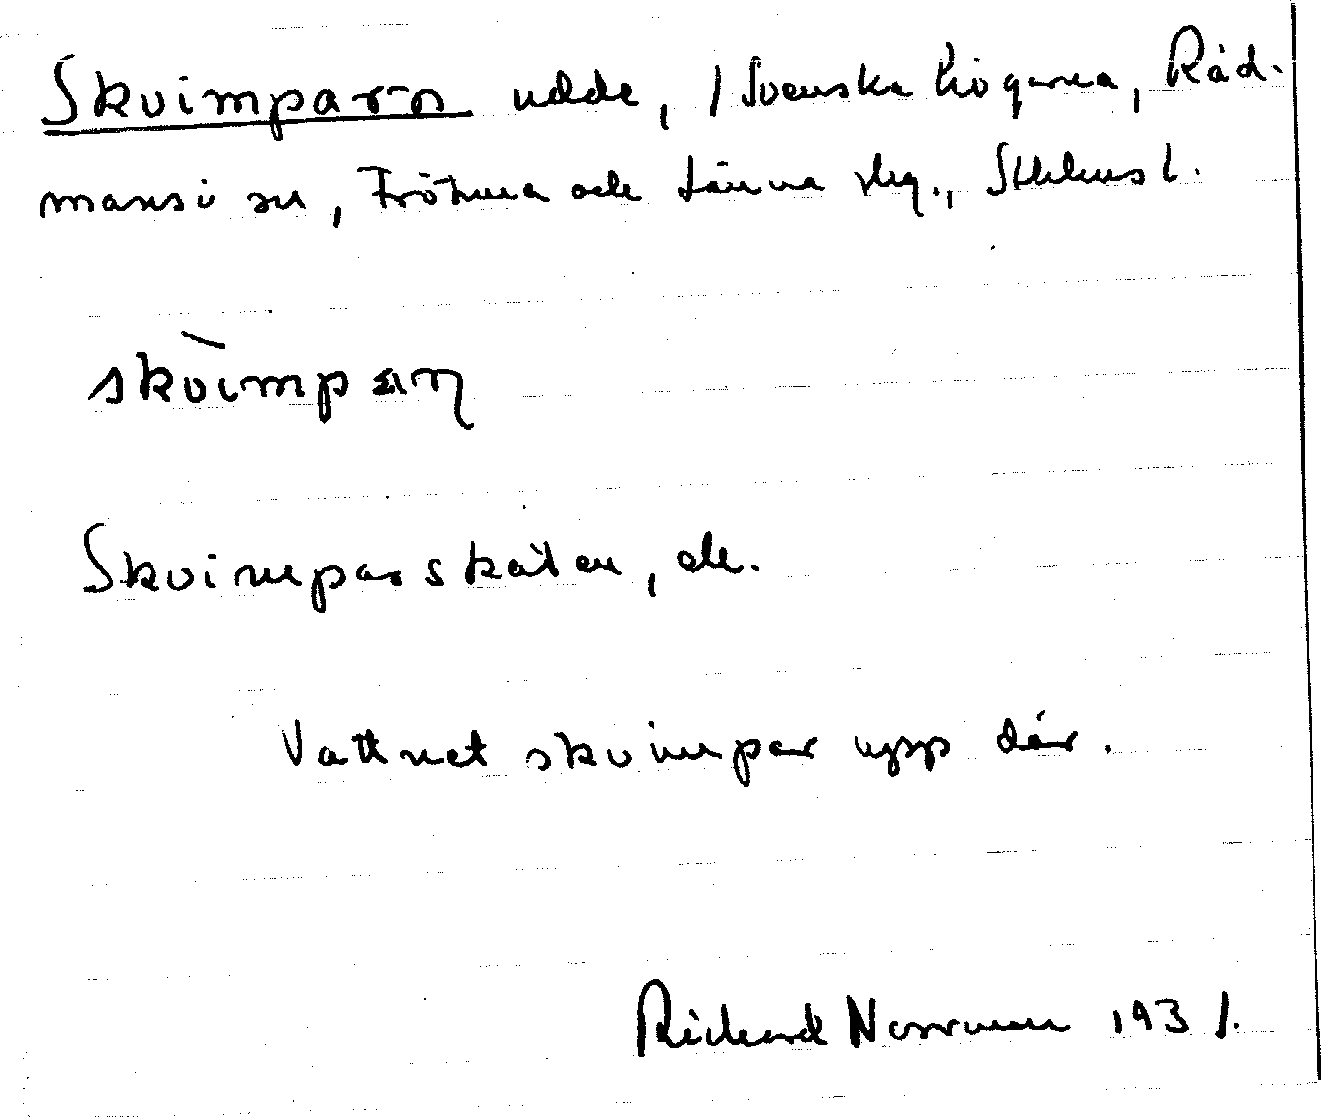 Skvimparn udde, / Svenska Högarna, Råd-
mansö sn, Frötuna och Länna skg., Sthlms l.
skvìmpan
Skvimparskätan, de.
Vattnet skvimpar upp där.
Rickard Norrman 1931.